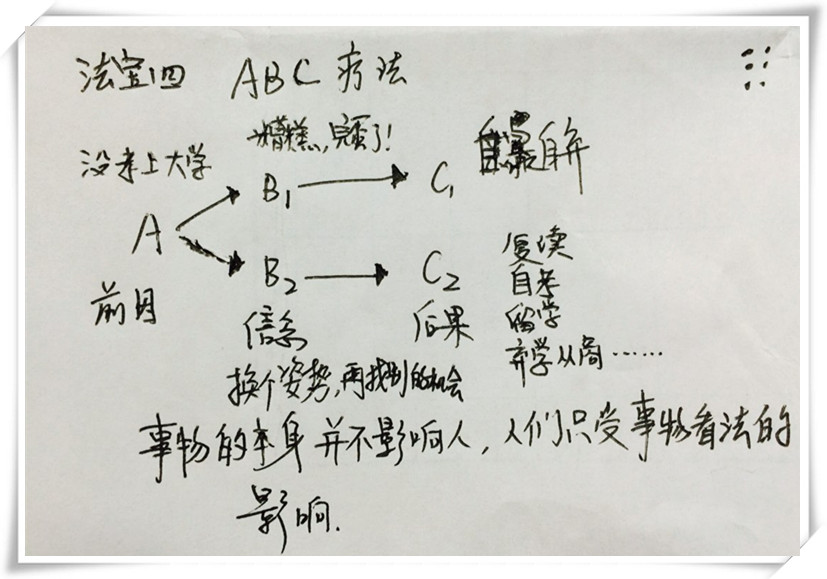 法宝四 ABC疗法
糟糕,完蛋了!
没考上大学
B₁ C₁ 自暴自弃
A
B₂ C₂
前因
信念
后果
复读
自考
留学
弃学从商……
换个姿势,再找到的机会
事物的本身并不影响人,人们只受事物看法的
影响.